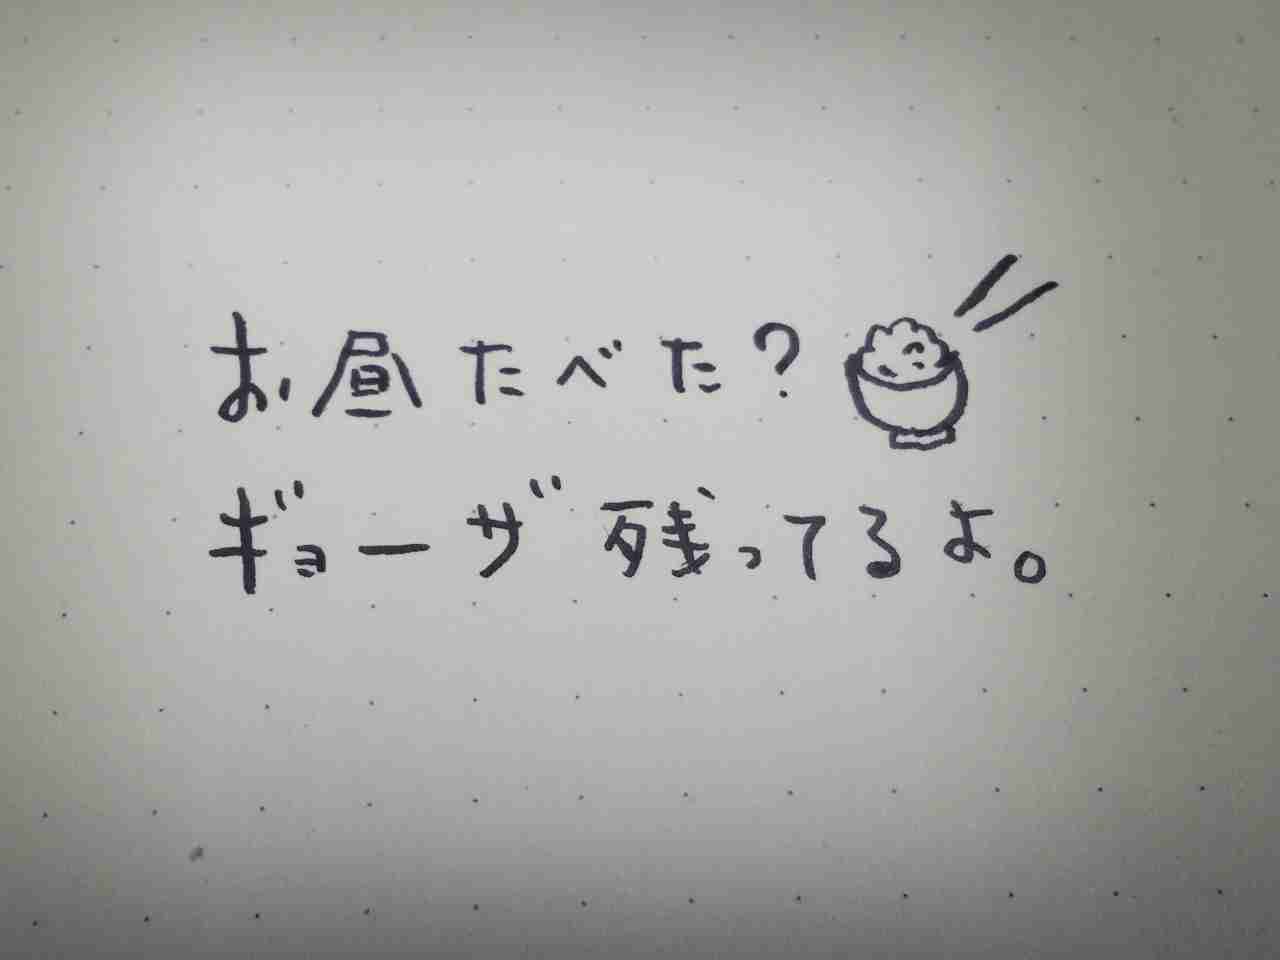 お昼たべた?
ギョーザ残ってるよ。